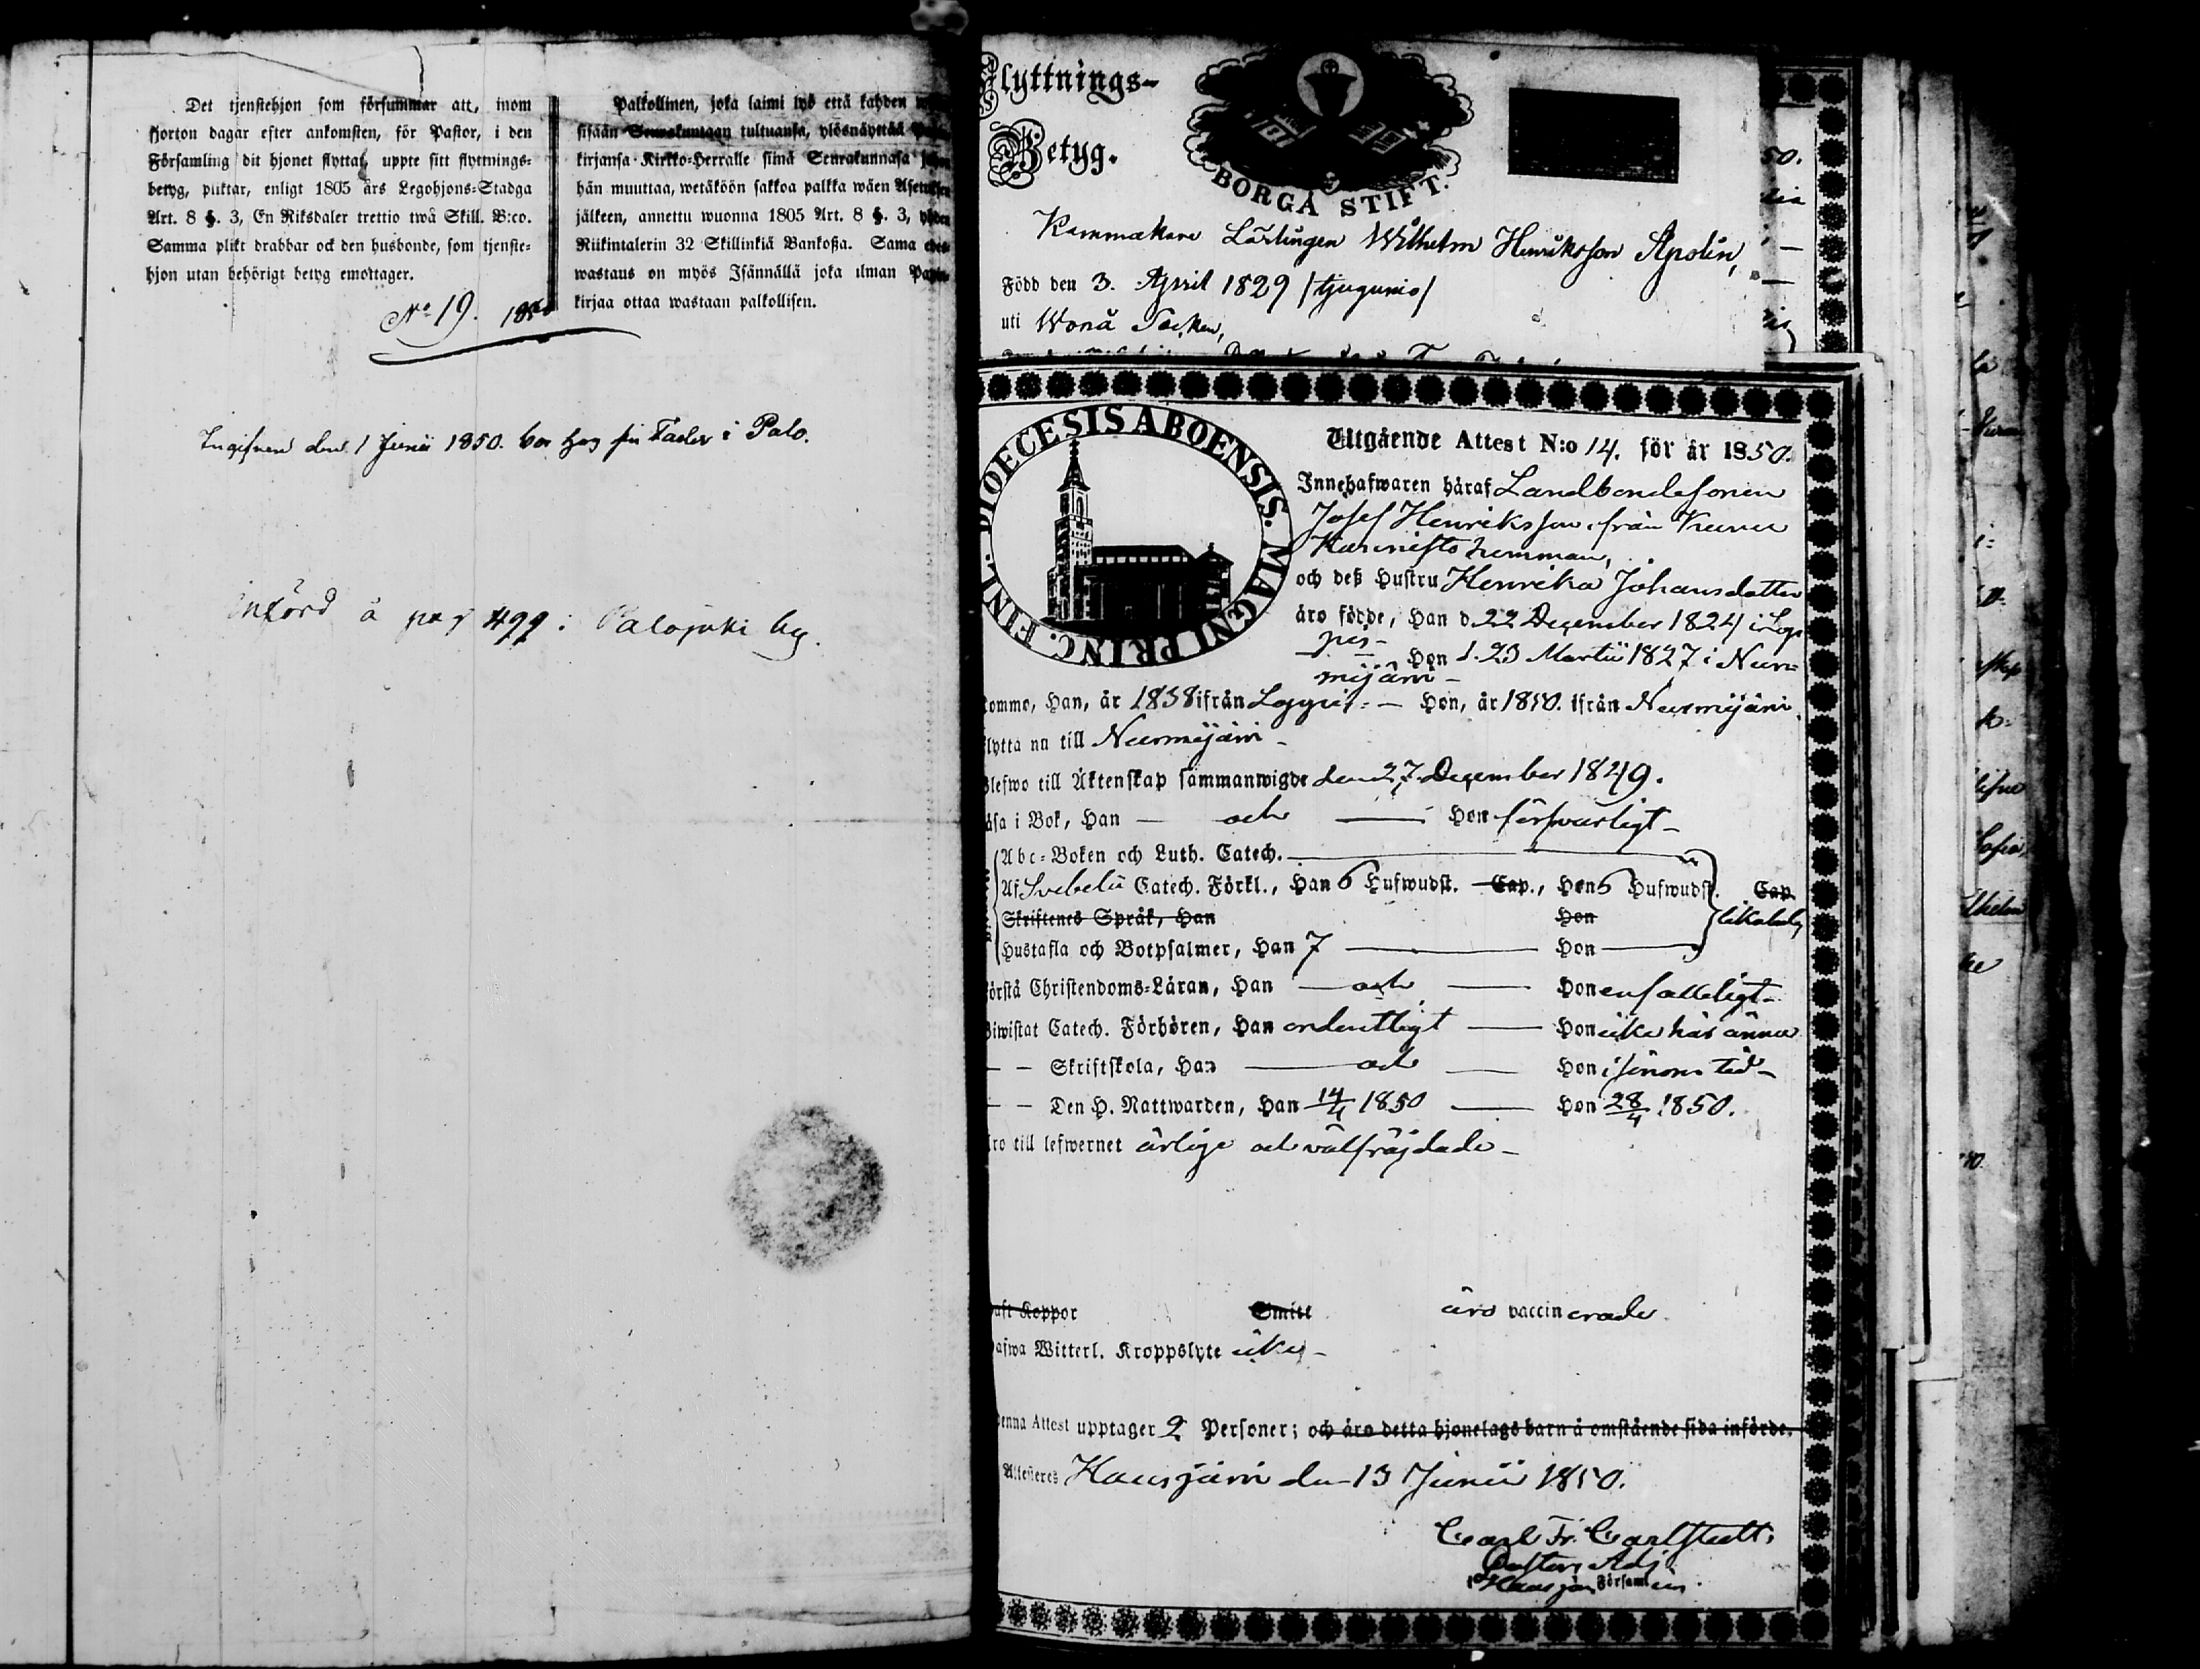 Det tjenstehjon som försummar att, inom
fjorton dagar efter ankomsten, för Pastor, i den
Församling dit hjonet flyttat, uppte sitt flyttnings-
betyg, pliktar, enligt 1805 års Legohjons-Stadga
Art. 8 §. 3, En Riksdaler trettio twå Skill. B:co.
Samma plikt drabbar ock den husbonde, som tjenste-
hjon utan behörigt betyg emottager.
Palkollinen, joka laimi lyö että kahden
sisään tultuansa, ylösnäyttää
kirjansa Kirkko-Herralle siinä Seurakunnasa
hän muuttaa, wetäköön sakkoa palkka wäen Asetuksen
jälkeen, annettu wuonna 1805 Art. 8 §. 3, yhden
Riikintalerin 32 Skillinkiä Bankoßa. Sama
wastaus on myös Isännällä joka ilman
kirjaa ottaa wastaan palkollisen.
No 19. 1850
Ingifven den 1 Junii 1850. bor hos sin Fader i Palo.
införd å pag 499 i Palojoki by.
Flyttnings-
Betyg.
BORGÅ STIFT.
Kammakare Lärlingen Wilhelm Henriksson Apolin,
Född den 3. April 1829 /tjugunio/
uti Wonå Socken,
DIOECESIS ABOENSIS. MAGNI PRINC. FINL.
Utgående Attest N:o 14. för år 1850.
Innehafwaren häraf Landbondesonen
Josef Henriksson från
hemman,
och deß Hustru Henrika Johansdotter
äro födde, Han d. 22 December 1824 i Lop
pis- Hon d. 23 Martii 1827 i Nur=
mijärvi -
komme, Han, år 1838 ifrån Loppis - Hon, år 1850. ifrån Nurmijärvi.
flytta nu till Nurmijärvi -
Blefwo till Äktenskap sammanwigde den 27 December 1849.
läsa i Bok, Han — och — Hon försvarligt -
Abc-Boken och Luth. Catech.
Af Svebelii Catech. Förkl., Han 6 Hufwudst. Cap., Hon 6 Hufwudst. Cap.
Skriftenes Språk, Han Hon likaledes
Hustafla och Botpsalmer, Han 7 — Hon —
förstå Christendoms-Läran, Han — och — Hon enfalleligt -
Biwistat Catech. Förhören, Han ordentligt — Hon icke här ännu
— — Skriftskola, Han — och — Hon i sinom tid -
— — Den H. Nattwarden, Han 14/4 1850 — Hon 28/4 1850.
äro till lefwernet ärlige och välfräjdade -
haft Koppor Smitt äro vaccinerade.
hafwa Witterl. Kroppslyte icke -
Denna Attest upptager 2 Personer; och äro detta hjonelags barn å omstående sida införde.
Attesteres Hausjärvi den 13 Junii 1850.
Carl Fr. Carlstedt.
Pastors Adj
i Hausjärvi Församl